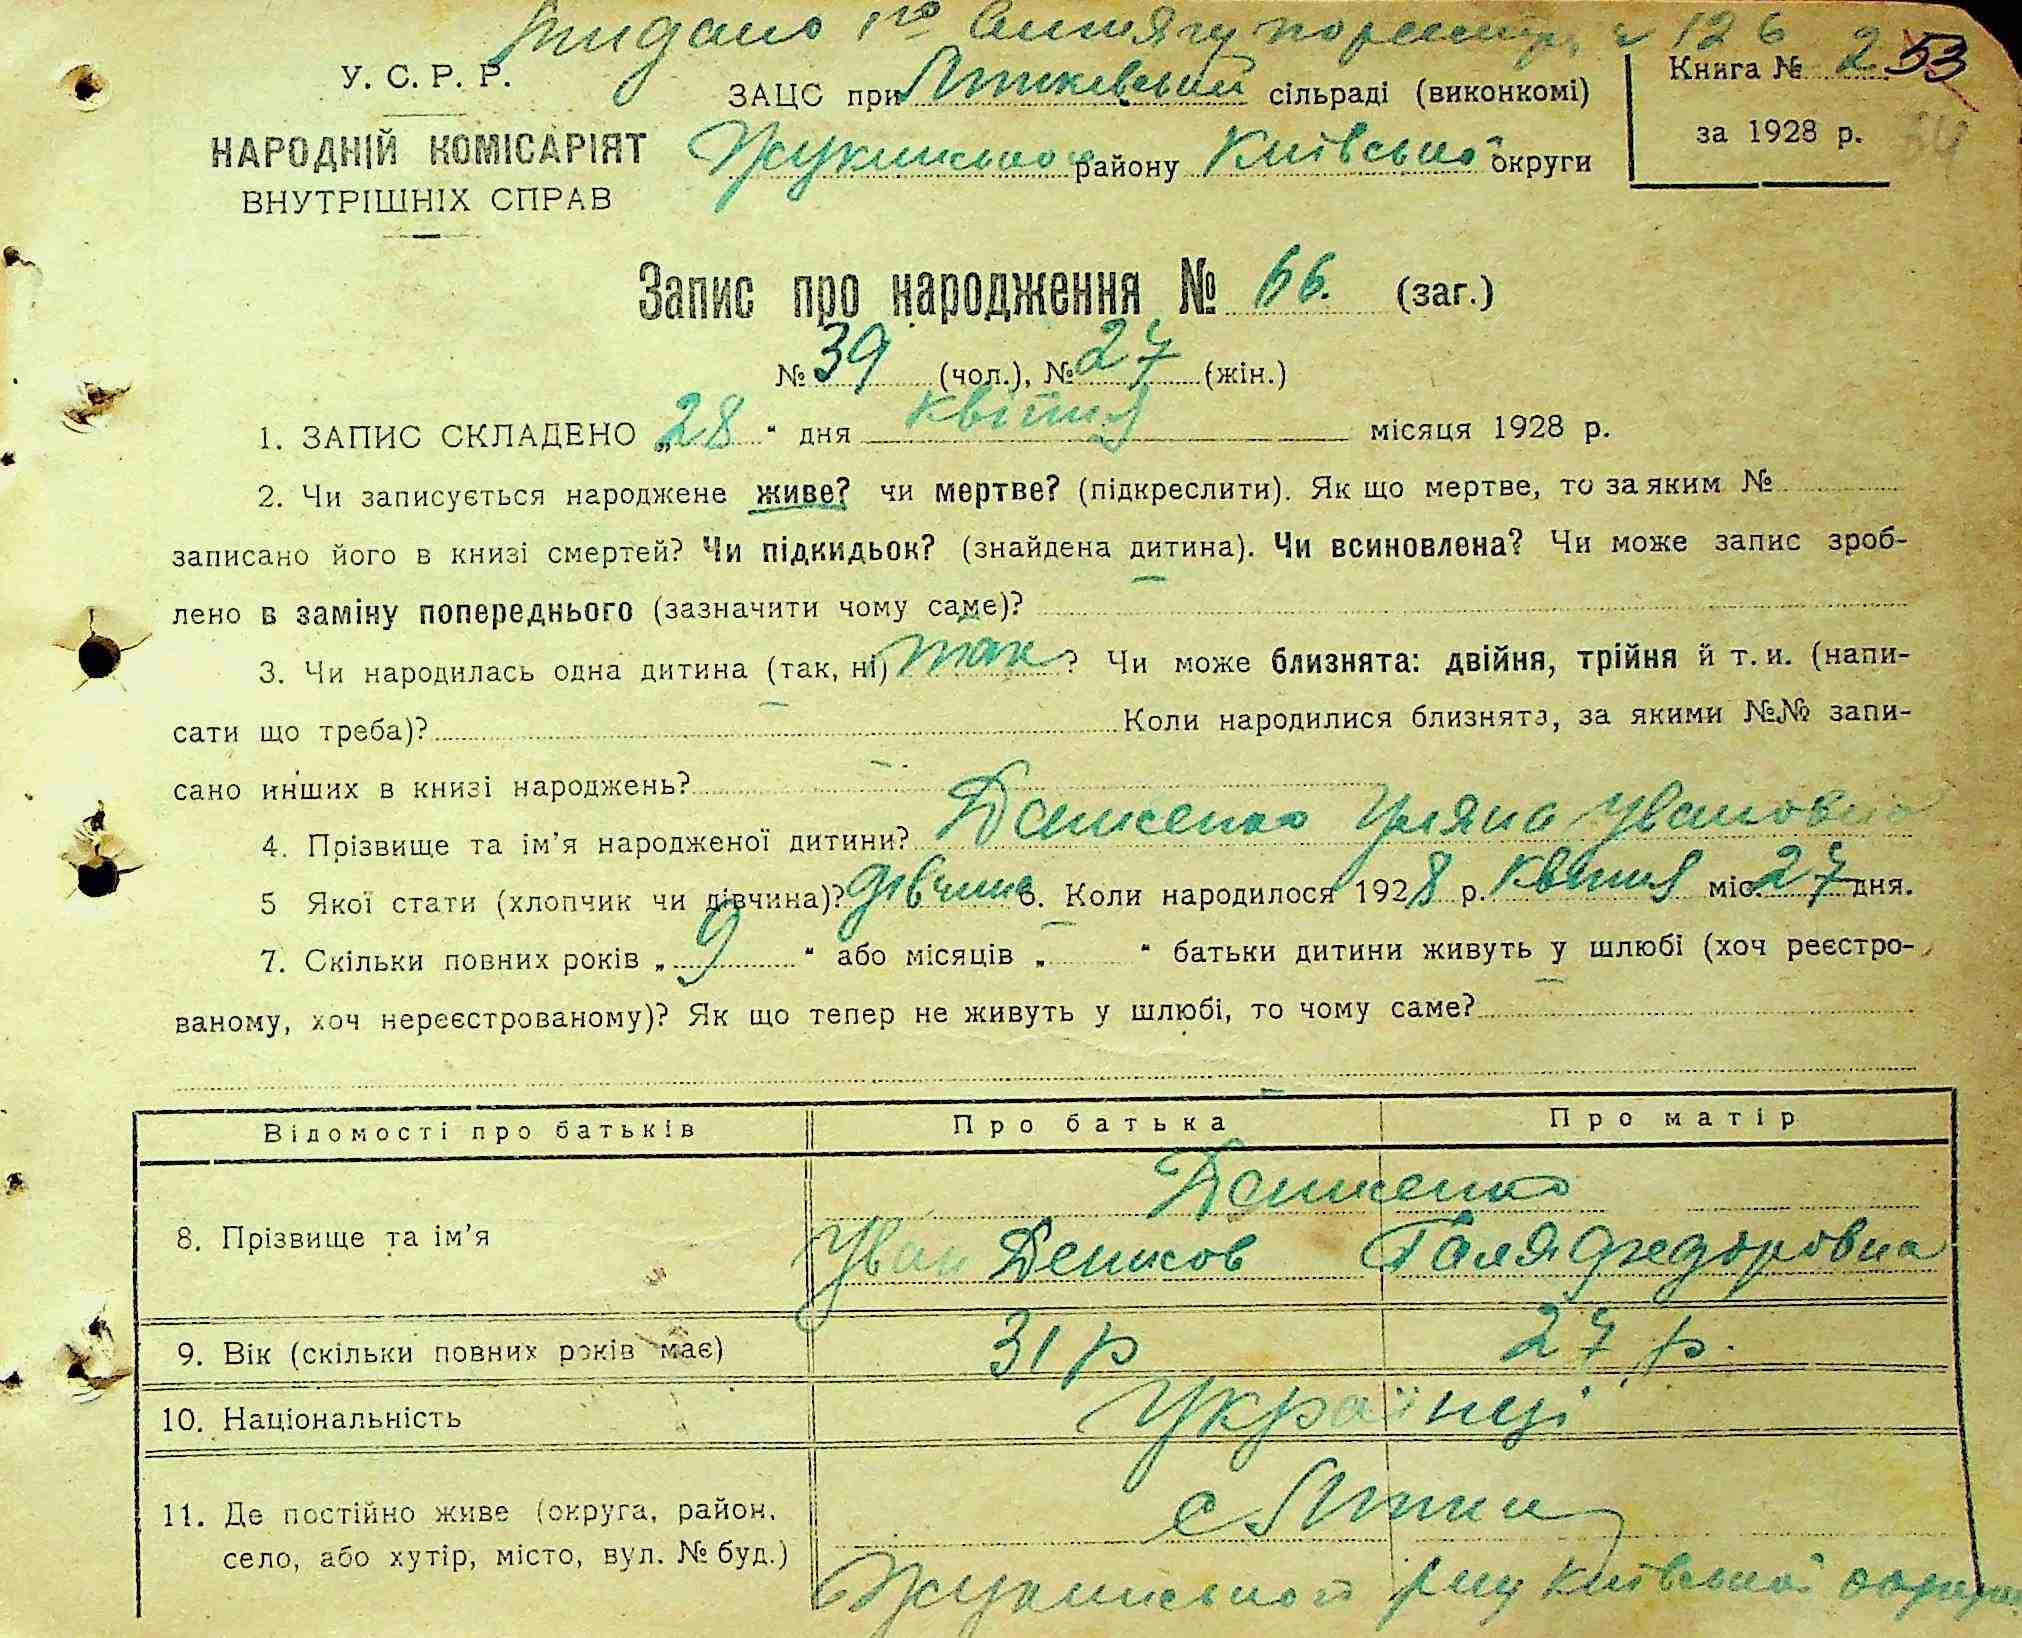 Видано 1го витягу по реєстр. № 126
У. С. Р. Р.
НАРОДНІЙ КОМІСАРІЯТ
ВНУТРІШНІХ СПРАВ
ЗАЦС при Літківський сільраді (виконкомі)
району Київської округи
Книга № 2 53
за 1928 р.
Запис про народження № 66. (заг.)
№ 39 (чол.), № 27 (жін.)
1. ЗАПИС СКЛАДЕНО „28" дня квітня місяця 1928 р.
2. Чи записується народжене живе? чи мертве? (підкреслити). Як що мертве, то за яким №
записано його в книзі смертей? Чи підкидьок? (знайдена дитина). Чи всиновлена? Чи може запис зроб-
лено в заміну попереднього (зазначити чому саме)?
3. Чи народилась одна дитина (так, ні) так ? Чи може близнята: двійня, трійня й т. и. (напи-
сати що треба)? Коли народилися близнята, за якими №№ запи-
сано инших в книзі народжень?
4. Прізвище та ім'я народженої дитини? Денисенко Уляна Увановна
5 Якої стати (хлопчик чи дівчина)? дівчина 6. Коли народилося 1928 р. квітня міс. 27 дня.
7. Скільки повних років „ 9 " або місяців „ " батьки дитини живуть у шлюбі (хоч реєстро-
ваному, хоч нереєстрованому)? Як що тепер не живуть у шлюбі, то чому саме?
Відомості про батьків Про батька Про матір
Денисенко
8. Прізвище та ім'я Уван Денисов Галя Федоровна
9. Вік (скільки повних років має) 31 р 27 р.
10. Національність Українці
11. Де постійно живе (округа, район, с Літки
село, або хутір, місто, вул. № буд.) р-ну Київської округи